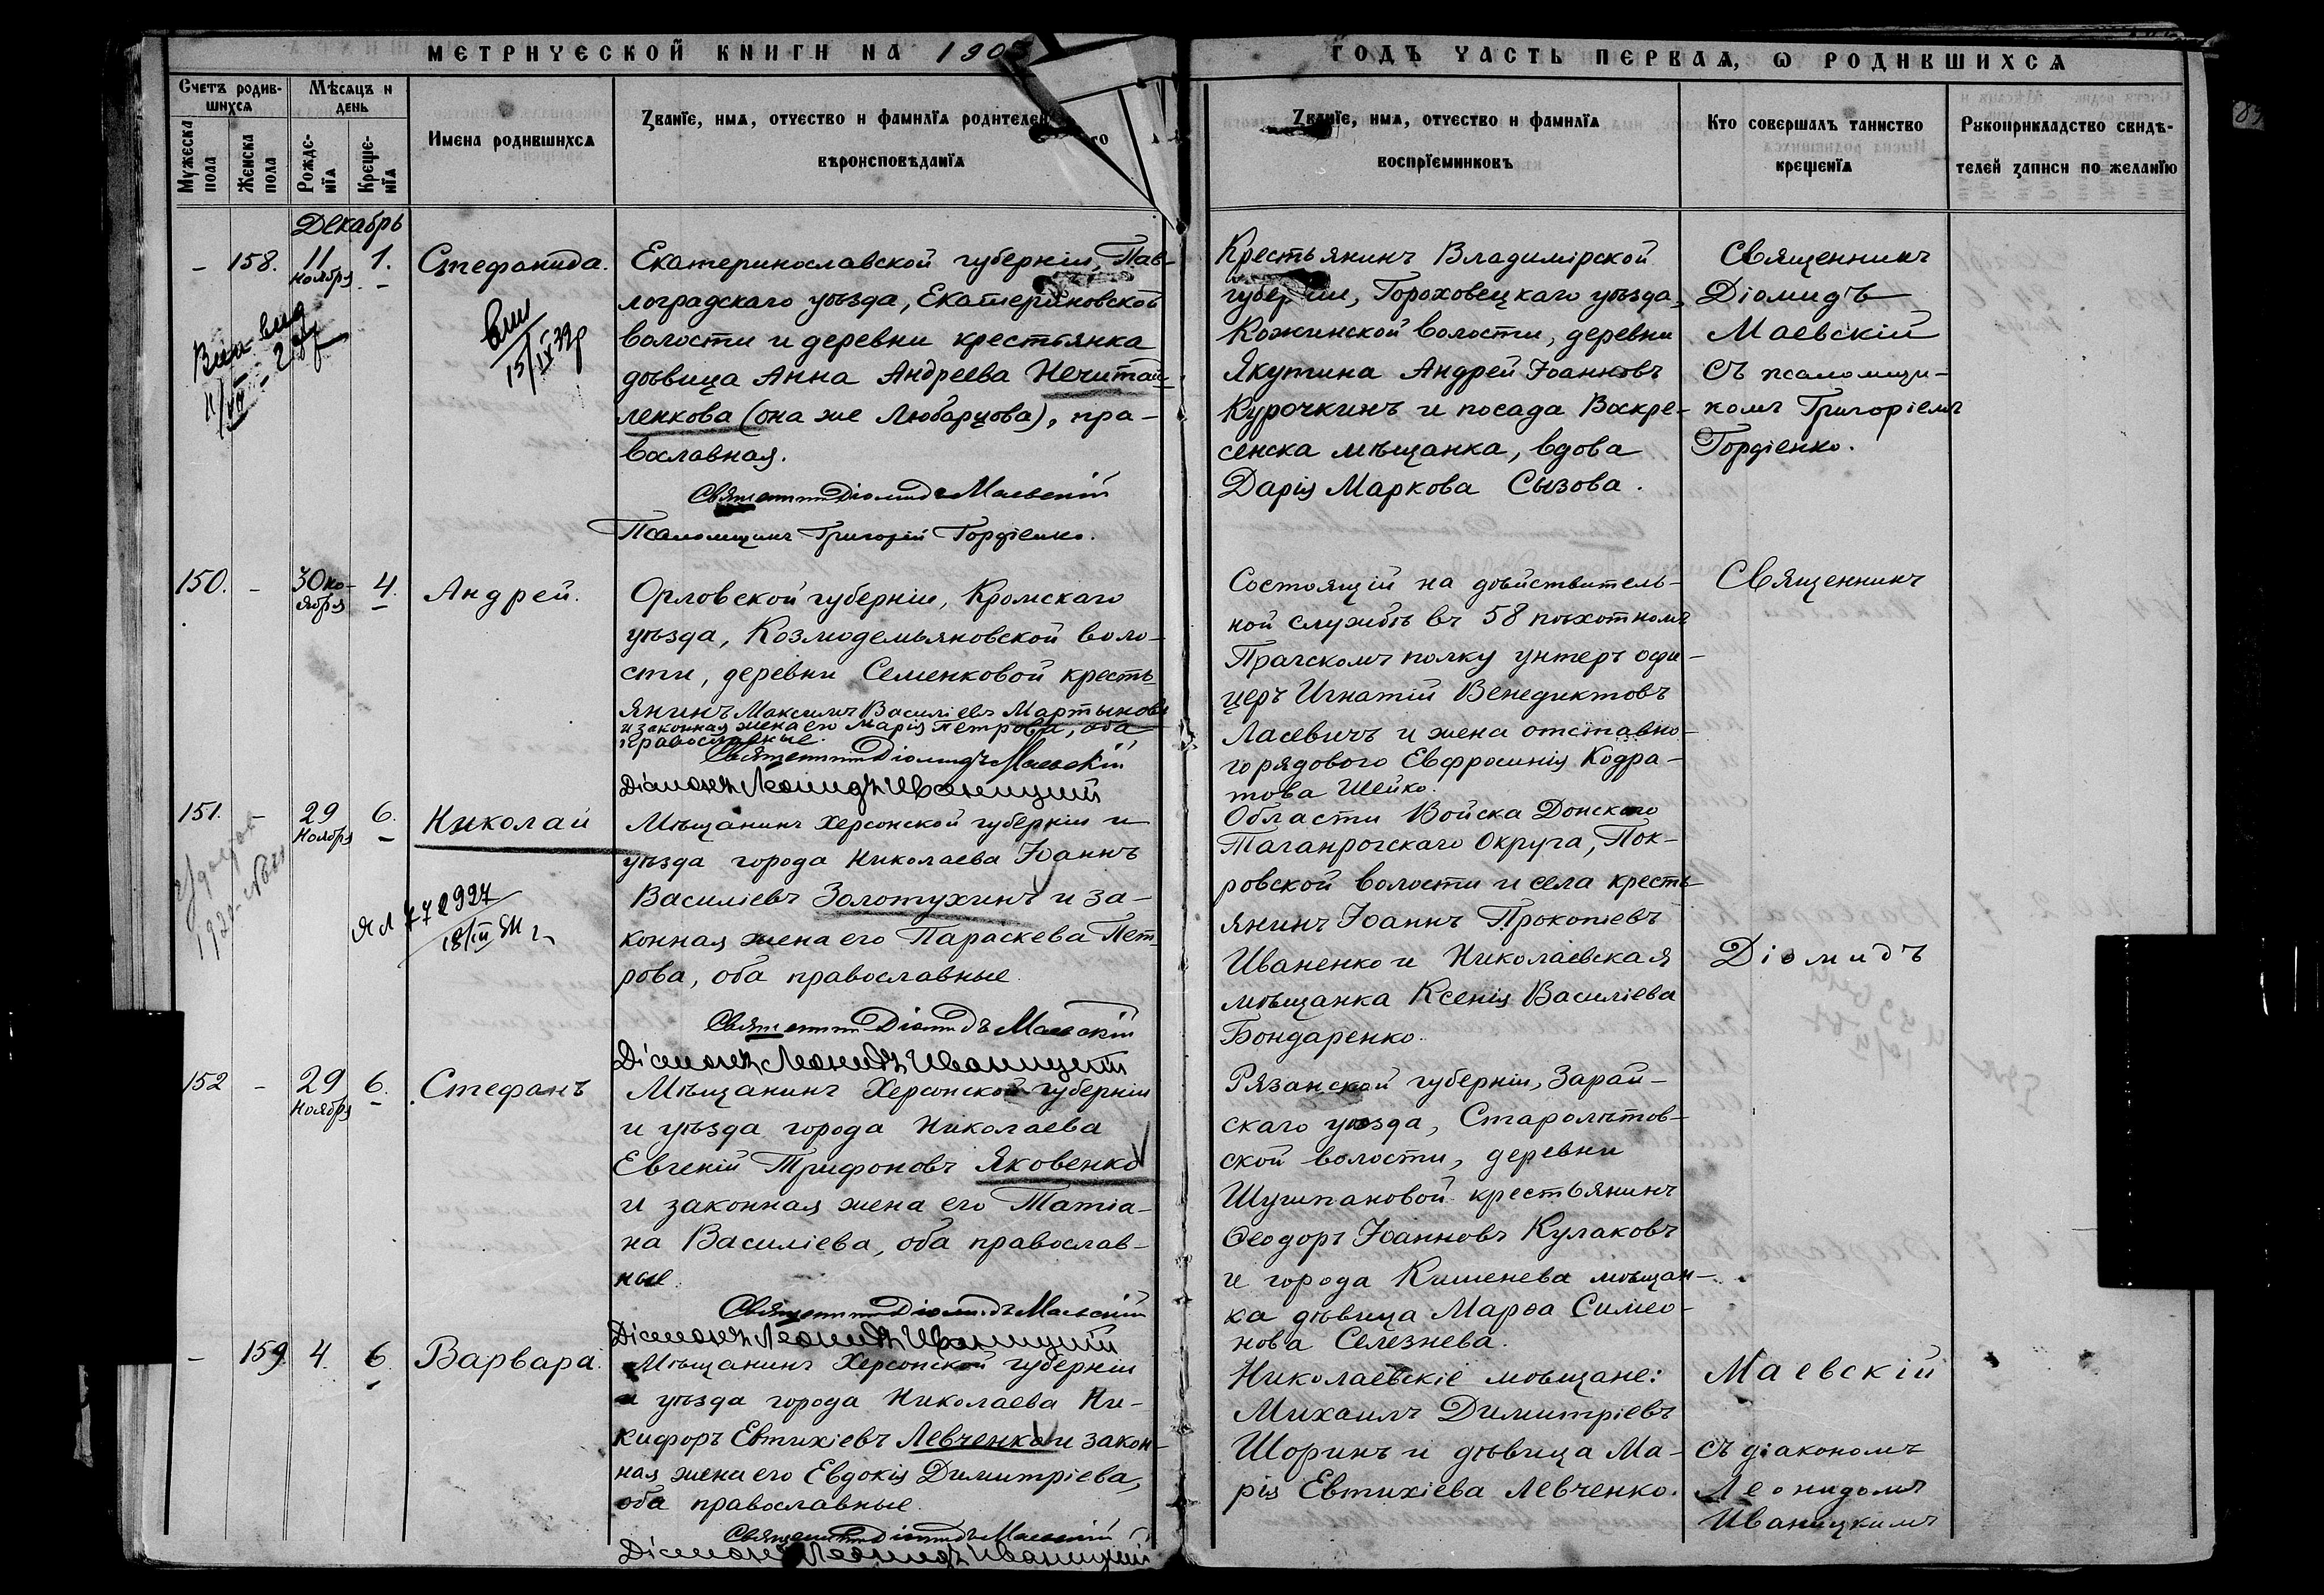 МЕТРИЧЕСКОЙ КНИГИ НА 190
ГОДЪ ЧАСТЬ ПЕРВАЯ, Ѡ РОДИВШИХСЯ
Счетъ родив-
шихся
Мѣсяцъ и
день
Мужеска
пола
Женска
пола
Рожде-
нїя
Креще-
нїя
Имена родившихся
Званїе, имя, отчество и фамилїя родителей
вѣроисповѣданїя
Званїе, имя, отчество и фамилїя
воспрїемниковъ
Кто совершалъ таинство
крещенїя
Рукоприкладство свидѣ-
телей записи по желанїю
Декабрь
- 158. 11 ноября 1. Стефанида.
Екатеринославской губерніи, Пав-
лоградскаго уѣзда, Екатериновской
волости и деревни крестьянка
дѣвица Анна Андреева Нечитай-
ленкова (она же Любарцова), пра-
вославная.
Священникъ Діомидъ Маевскій
Псаломщикъ Григорій Гордіенко.
Крестьянинъ Владимірской
губерніи, Гороховецкаго уѣзда,
Кожинской волости, деревни
Якутина Андрей Іоанновъ
Курочкинъ и посада Воскре-
сенска мѣщанка, вдова
Дарія Маркова Сызова.
Священникъ
Діомидъ
Маевскій
съ псаломщи-
комъ Григоріемъ
Гордіенко.
150. - 30 но-
ября 4. Андрей.
Орловской губерніи, Кромскаго
уѣзда, Козмодемьяновской воло-
сти, деревни Семенковой кресть-
янинъ Максимъ Василіевъ Мартыновъ
и законная жена его Марія Петрова, оба
православные.
Священникъ Діомидъ Маевскій
Діаконъ Леонидъ Иваницкий
Состоящій на дѣйствитель-
ной службѣ въ 58 пѣхотномъ
Прагскомъ полку унтеръ офи-
церъ Игнатій Венедиктовъ
Ласевичъ и жена отставно-
го рядового Евфросинія Кодра-
това Шейко.
Священникъ
151. - 29 Ноября 6. Николай
Мѣщанинъ Херсонской губерніи и
уѣзда города Николаева Іоаннъ
Василіевъ Золотухинъ и за-
конная жена его Параскева Пет-
рова, оба православные.
Священникъ Діомидъ Маевскій
Діаконъ Леонидъ Иваницкий
Области Войска Донского
Таганрогскаго Округа, Пок-
ровской волости и села кресть-
янинъ Іоаннъ Прокопіевъ
Иваненко и Николаевская
мѣщанка Ксенія Василіева
Бондаренко.
Діомидъ
152 - 29 Ноября 6. Стефанъ
Мѣщанинъ Херсонской губерніи
и уѣзда города Николаева
Евгеній Трифоновъ Яковенко
и законная жена его Татіа-
на Василіева, оба православ-
ные.
Священникъ Діомидъ Маевскій
Діаконъ Леонидъ Иваницкий
Рязанской губерніи, Зарай-
скаго уѣзда, Старолѣтов-
ской волости, деревни
Шушпановой крестьянинъ
Ѳеодоръ Іоанновъ Кулаковъ
и города Кишенева мѣщан-
ка дѣвица Марѳа Симео-
нова Селезнева.
- 159. 4. 6. Варвара.
Мѣщанинъ Херсонской губерніи
и уѣзда города Николаева Ни-
кифоръ Евтихіевъ Левченко и закон-
ная жена его Евдокія Димитріева,
оба православные.
Священникъ Діомидъ Маевскій
Діаконъ Леонидъ Иваницкий
Николаевскіе мѣщане:
Михаилъ Димитріевъ
Шоринъ и дѣвица Ма-
рія Евтихіева Левченко.
Маевскій
съ діакономъ
Леонидомъ
Иваницкимъ